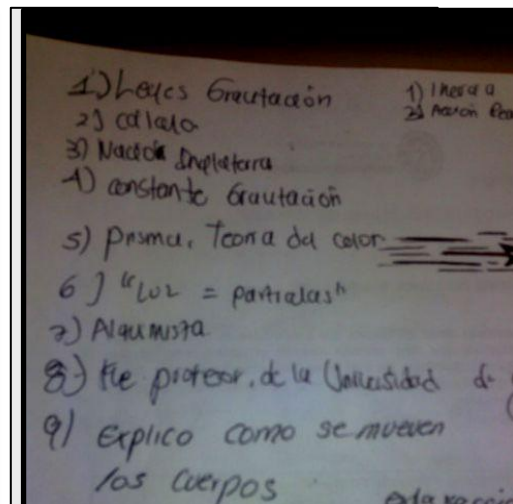 1) Leyes Gravitación
2) calculo
3) Nacio Inglaterra
4) constante Gravitación
5) Prisma, Teoria del color
6) "Luz = particulas"
7) Alquimista
8) Fue profesor, de la Universidad de
9) Explico como se mueven
los cuerpos
1) Inercia
2) Accion